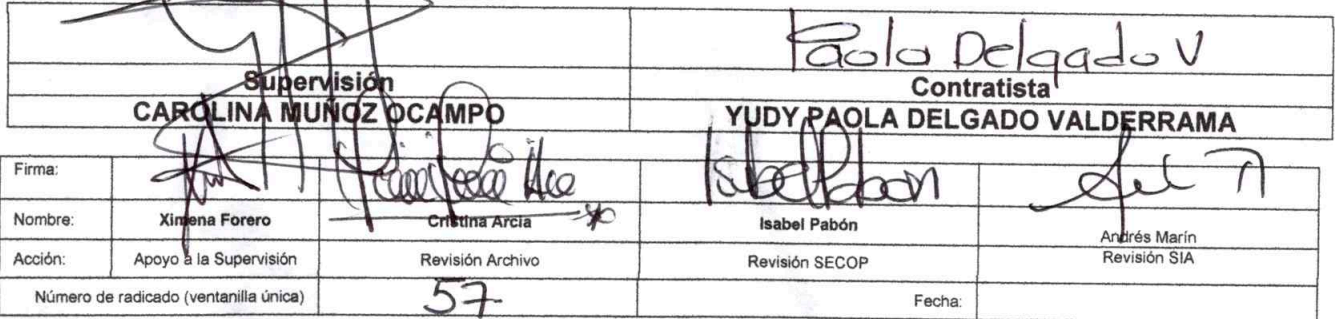 Paola Delgado V
Supervisión Contratista
CAROLINA MUÑOZ OCAMPO YUDY PAOLA DELGADO VALDERRAMA
Firma: Isabel Pabon
Nombre: Ximena Forero Cristina Arcia Isabel Pabón Andrés Marín
Acción: Apoyo a la Supervisión Revisión Archivo Revisión SECOP Revisión SIA
Número de radicado (ventanilla única) 57 Fecha: